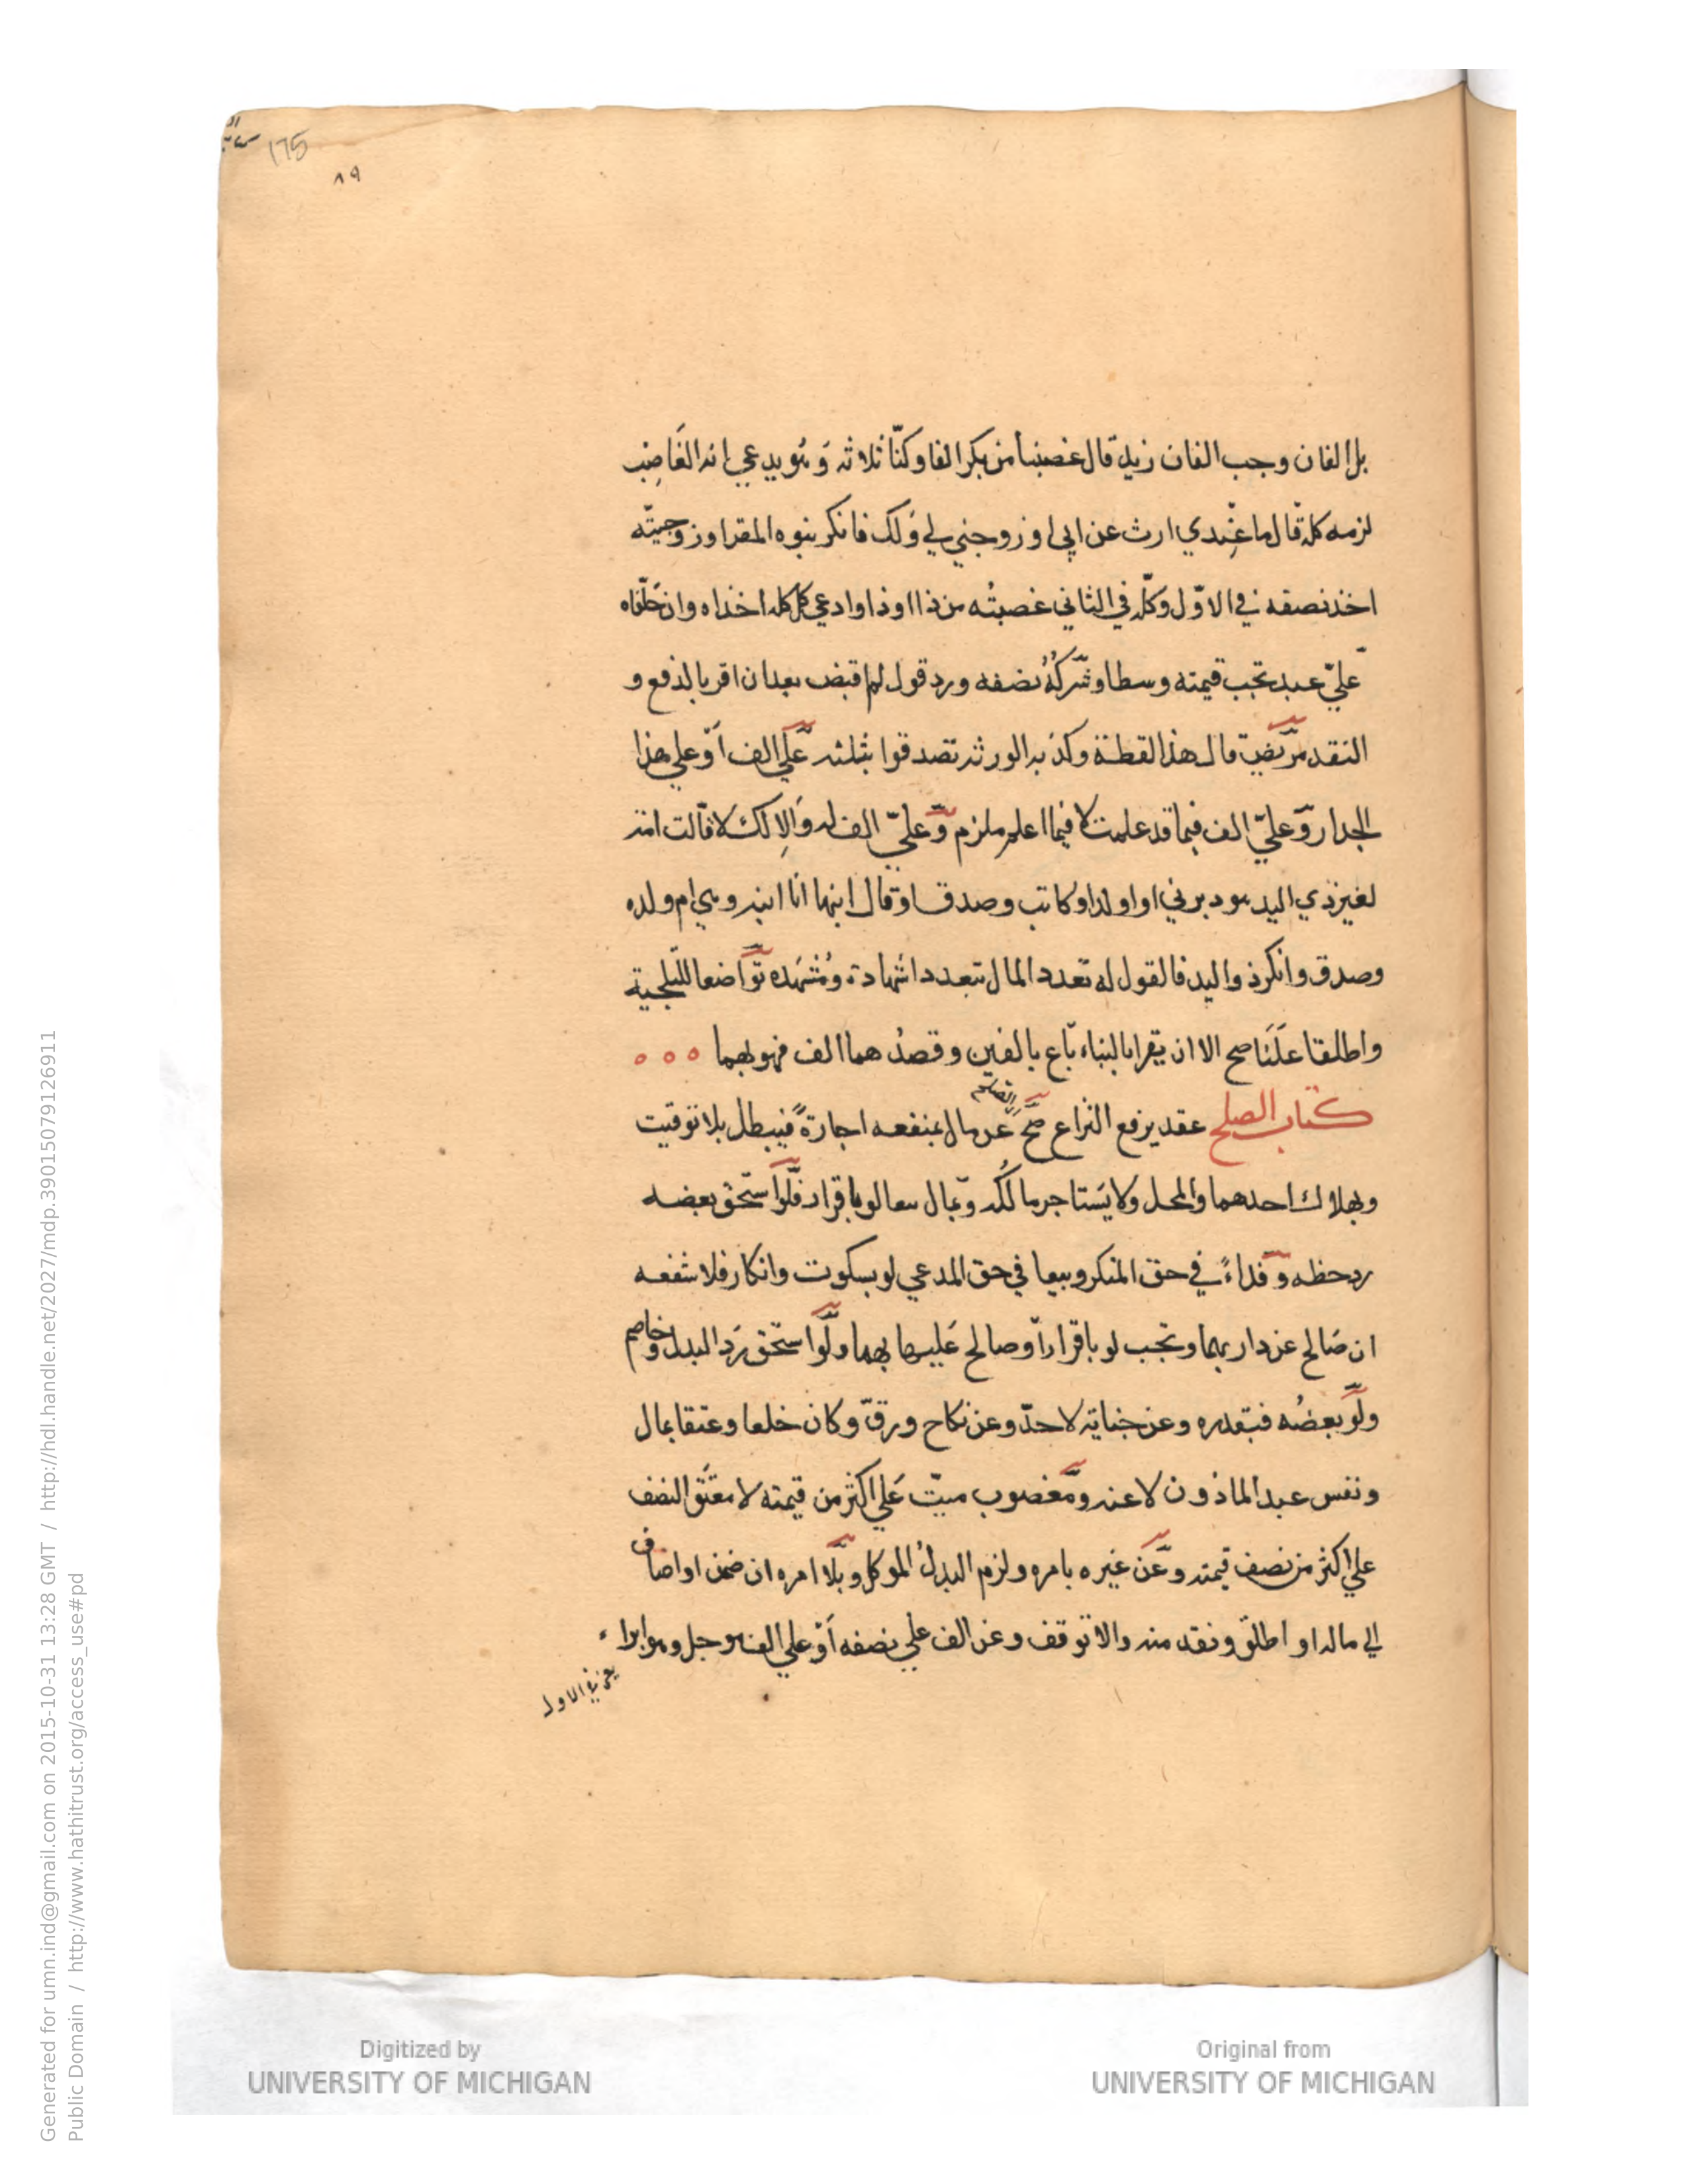 175
٨٩
بل الفان وجب الفان زيد قال غصبنا من بكر الفا وكنّا ثلاثه وَ يدعي انه الغَاصِب
لزمه كله قال ما عِندي ارث عن ابي او زوجني لي وَلك فانكر بنوه المقر او زوجيّته
اخذ نصفه في الاوّل وكلّه في الثاني غصبتُه من ذا او ذا وادعي كل كله اخذاه وان حَلّفاه
عليّ عبد تجب قيمته وسطا وشركةُ نصفه ورد قول لم اقبض بعد ان اقر بالدفع و
النقد مريض قال هذا لقطة وكذبه الورثه تصدقوا بثلثه عَلي الف اَو علي هذا
الجدار وَعليّ الف فيما قد علمت لا فيما اعلم ملزم وَّعليّ الف له وَإلا لك لا قالت امة
لغير ذي اليد هو دبرني او اولد او كاتب وصدق او قال ابنها انا ابنه وهي ام ولده
وصدق وانكر ذو اليد فالقول له تعدد المال بتعدد اشهادة ومُشهَده توَاضعا للتلجية
واطلقا عَلَنَا صح الا ان يقرا بالبناء بَاع بالفين وقصدُ هما الف فهو بهما ٥ ٥ ٥
كتاب الصلح عقد يرفع النزاع صَحّ عَن مال بمنفعه اجارةً فيبطل بلا توقيت
وبهلاك احدهما والمحل ولا يَستاجر مالكُه وَبمال بيعا لو باقرار فلَو استحق بعضه
رد حظه وَ فداءً في حق المنكر وبيعا في حق المدعي لو بسكوت وانكار فلا شفعه
ان صَالح عن دار بهما وتجب لو باقرار اَو صالح عَليها بهما ولَو استحق رَد البدل وخاصم
ولَو بعضُه فبقدره وعن جناية لا حدّ وعن نكاح ورقّ وكان خلعا وعتقا بمال
ونفس عبد الماذون لا عنه ومَغصوب ميّت عَلي اكثر من قيمته لا معتَق النصف
علي اكثر من نصف قيمته وعَن غيره بامره ولزم البدلُ الموكل وبلَا امره ان ضمن او اضاف
الي ماله او اطلق ونقد منه والا توقف وعن الف علي نصفه اَو علي الف موجل وهو ابراء
يعني في الاول
Digitized by
UNIVERSITY OF MICHIGAN
Original from
UNIVERSITY OF MICHIGAN
Generated for umn.ind@gmail.com on 2015-10-31 13:28 GMT / http://hdl.handle.net/2027/mdp.39015079126911
Public Domain / http://www.hathitrust.org/access_use#pd